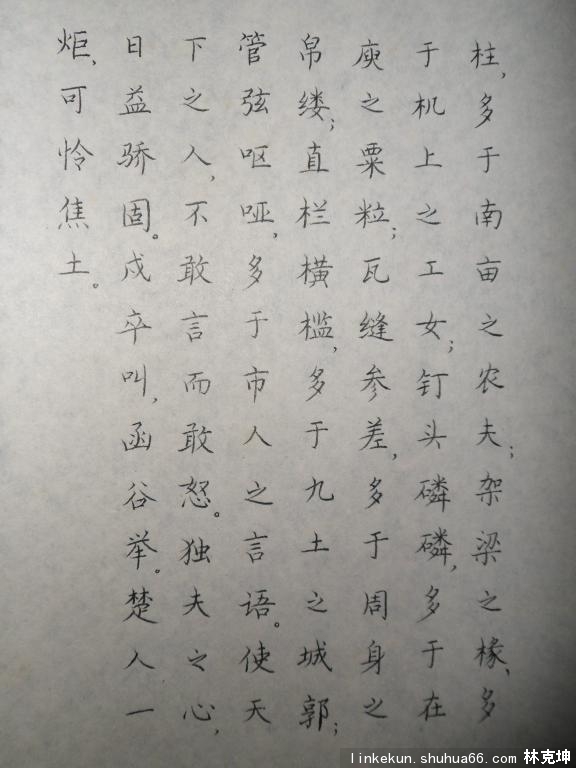 柱，多于南亩之农夫；架梁之椽，多
于机上之工女；钉头磷磷，多于在
庾之粟粒；瓦缝参差，多于周身之
帛缕；直栏横槛，多于九土之城郭；
管弦呕哑，多于市人之言语。使天
下之人，不敢言而敢怒。独夫之心，
日益骄固。戍卒叫，函谷举。楚人一
炬，可怜焦土。
linkekun.shuhua66.com 林克坤